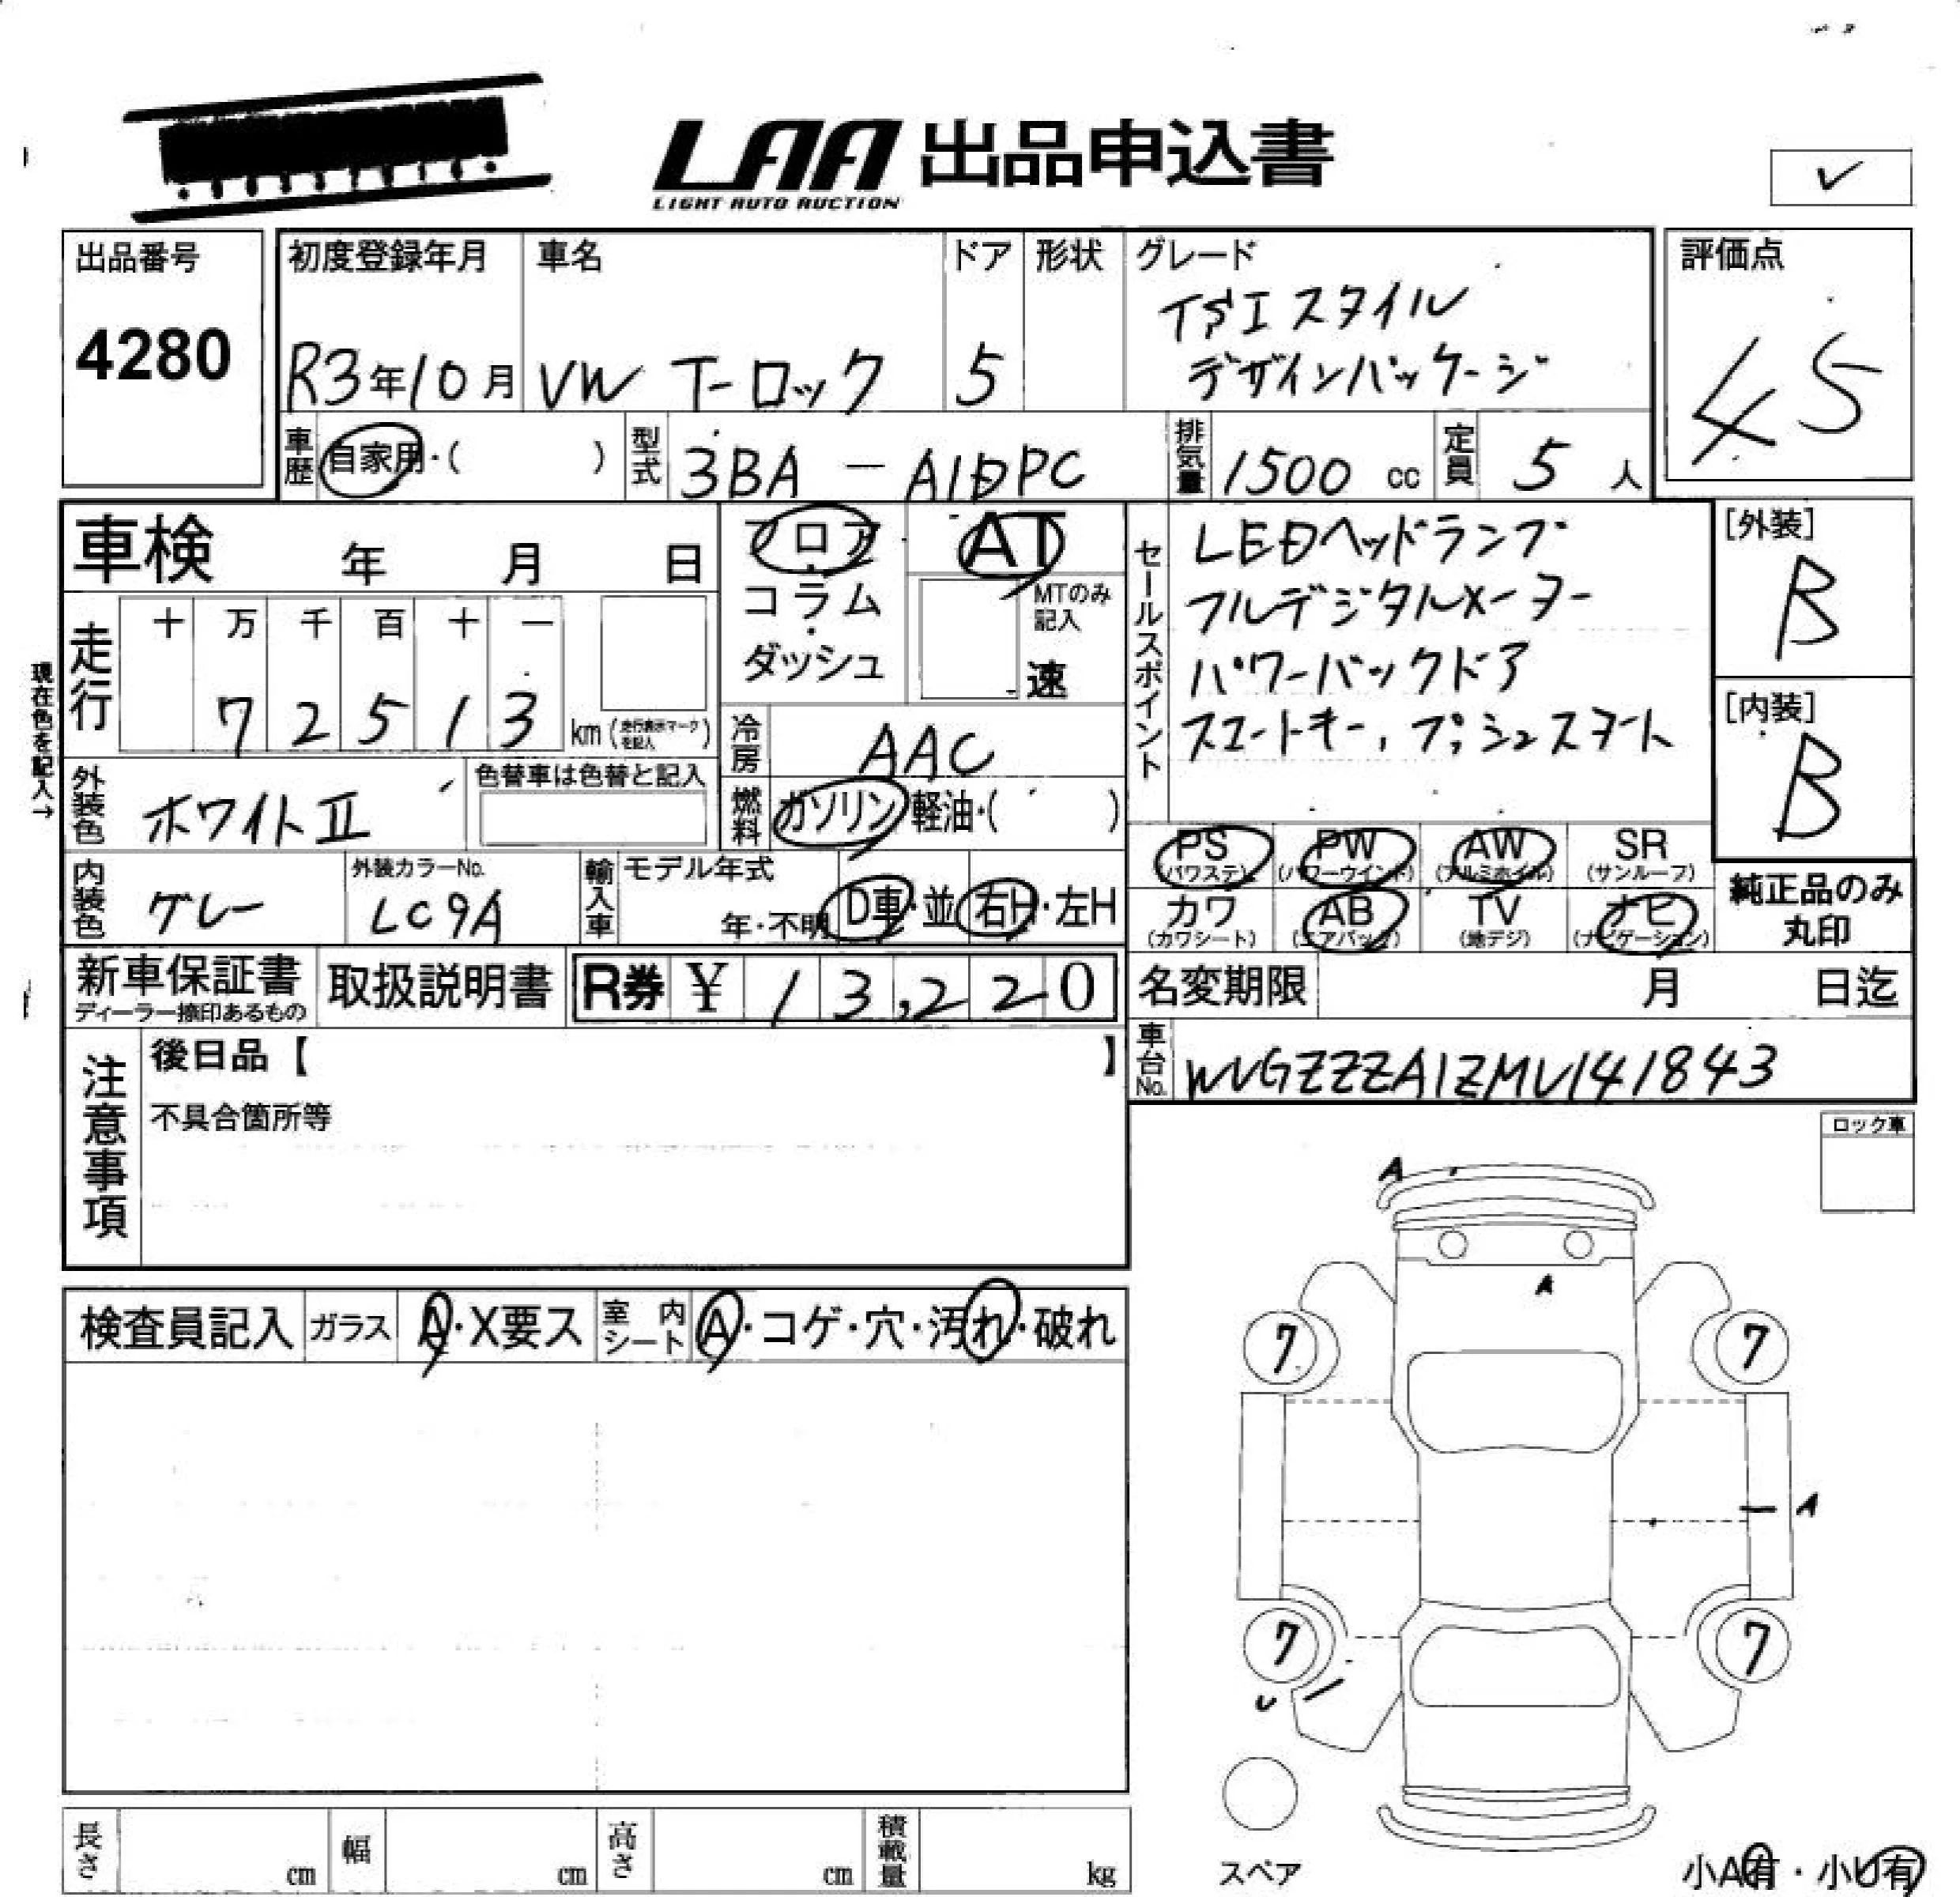 LAA 出品申込書
LIGHT AUTO AUCTION
出品番号
4280
初度登録年月
R3年10月
車名
VW T-ロック
ドア
5
形状
グレード
TSI スタイル
デザインパッケージ
評価点
4.5
車歴
自家用・( )
型式
3BA - A1DPC
排気量
1500 cc
定員
5 人
車検 年 月 日
フロア
・
コラム
・
ダッシュ
AT
MTのみ
記入
速
セールスポイント
LEDヘッドランプ
フルデジタルメーター
パワーバックドア
スマートキー, プッシュスタート
[外装]
B
[内装]
B
現在色を記入→
走行
十 万 千 百 十 一
7 2 5 1 3
km (走行表示マークを記入)
冷房
AAC
外装色
ホワイトⅡ
色替車は色替と記入
燃料
ガソリン・軽油・( )
PS
(パワステ)
PW
(パワーウインド)
AW
(アルミホイル)
SR
(サンルーフ)
カワ
(カワシート)
AB
(エアバック)
TV
(地デジ)
ナビ
(ナビゲーション)
純正品のみ
丸印
内装色
グレー
外装カラーNo.
LC9A
輸入車
モデル年式
年・不明
D車・並
右H・左H
新車保証書
ディーラー捺印あるもの
取扱説明書
R券 ¥ 13,220
名変期限 月 日迄
車台No.
WVGZZZA1ZMV141843
注意事項
後日品【 】
不具合箇所等
ロック車
検査員記入
ガラス
A・X要ス
室内シート
A・コゲ・穴・汚れ・破れ
A
A
7
7
A
7
7
U
スペア
長さ cm
幅 cm
高さ cm
積載量 kg
小A有・小U有